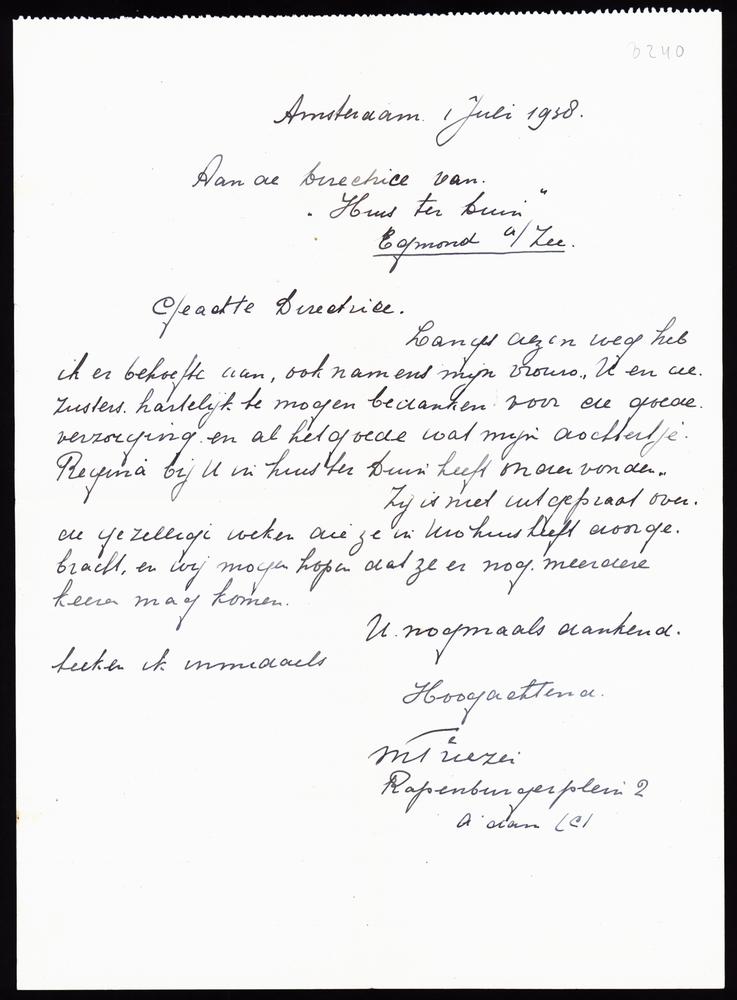 B240
Amsterdam. 1 Juli 1938.
Aan de Directrice van.
"Huis ter Duin"
Egmond a/Zee.
Geachte Directrice.
Langs dezen weg heb
ik er behoefte aan, ook namens mijn vrouw, U en de.
Zusters. hartelijk te mogen bedanken voor de goede.
verzorging en al het goede wat mijn dochtertje.
Regina bij U in huis ter Duin heeft ondervonden.
Zij is niet uitgepraat over.
de gezellige weken die ze in Uw huis heeft doorge.
bracht, en wij mogen hopen dat ze er nog meerdere
keeren mag komen.
U nogmaals dankend.
teeken ik inmiddels
Hoogachtend.
Rapenburgerplein 2
A'dam (C)